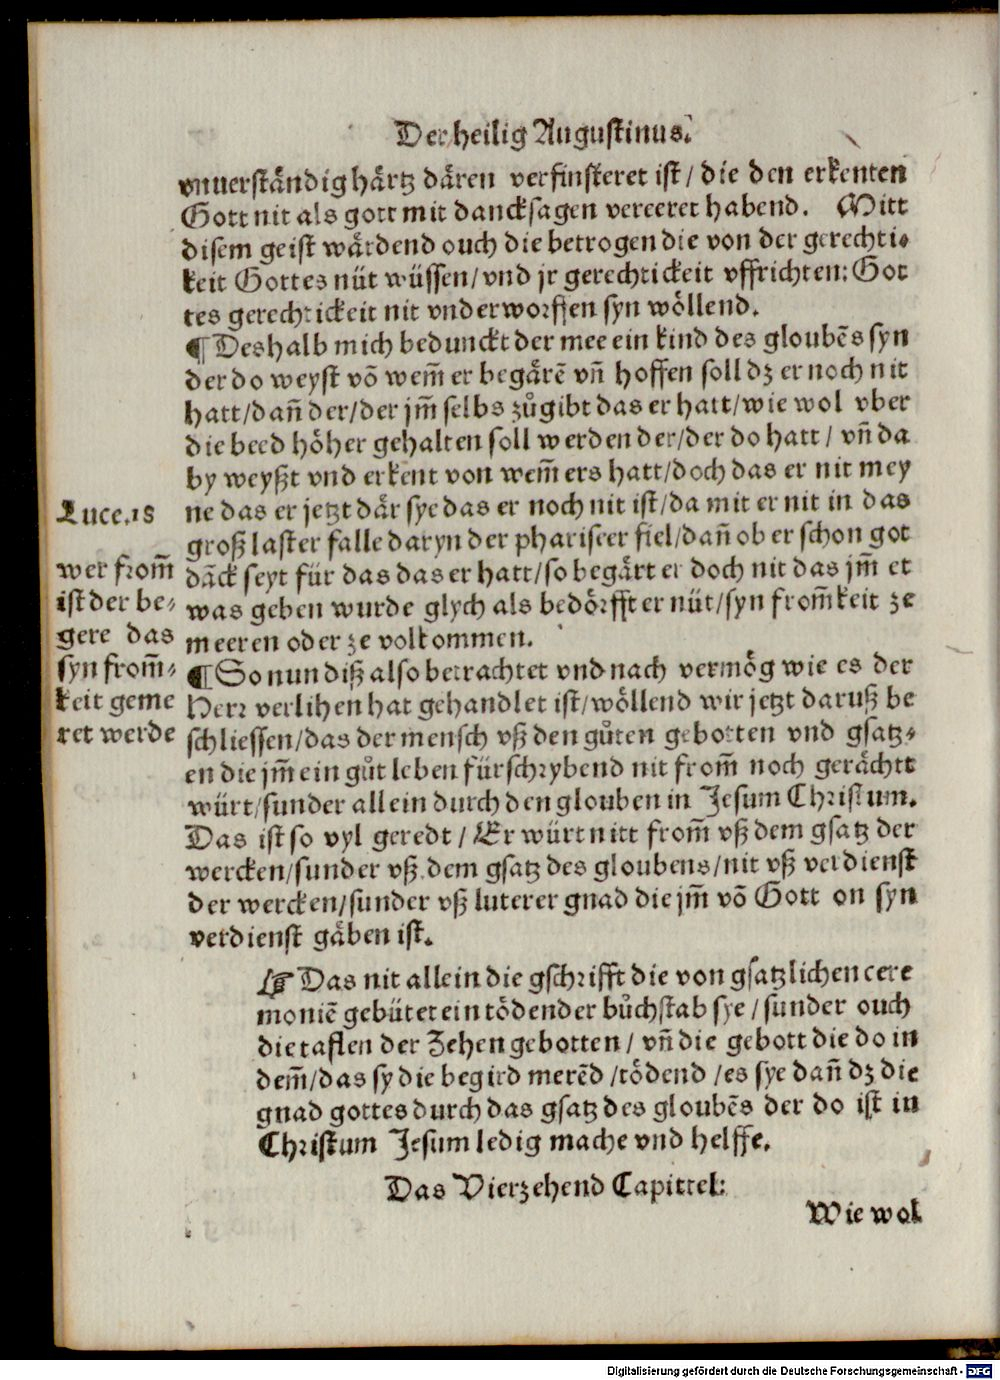 Der heilig Augustinus.
vnuerständig härtz dären verfinsteret ist / die den erkenten
Gott nit als gott mit dancksagen vereeret habend. Mitt
disem geist wärdend ouch die betrogen die von der gerechti-
keit Gottes nüt wüssen / vnd jr gerechtickeit vffrichten: Got
tes gerechtickeit nit vnderworffen syn wöllend.
¶ Deshalb mich bedunckt der mee ein kind des gloubēs syn
der do weyst vō wem̄ er begärē vn̄ hoffen soll dz er noch nit
hatt / dan̄ der / der jm̄ selbs zůgibt das er hatt / wie wol vber
die beed höher gehalten soll werden der / der do hatt / vn̄ da
by weyßt vnd erkent von wem̄ ers hatt / doch das er nit mey
Luce. 18
ne das er jetzt där sye das er noch nit ist / da mit er nit in das
groß laster falle daryn der phariseer fiel / dan̄ ob er schon got
wer from̄
ist der be-
gere das
syn from̄-
keit geme
ret werde
dāck seyt für das das er hatt / so begärt er doch nit das jm̄ et
was geben wurde glych als bedörfft er nüt / syn from̄keit ze
meeren oder ze volkommen.
¶ So nun diß also betrachtet vnd nach vermög wie es der
Herr verlihen hat gehandlet ist / wöllend wir jetzt daruß be
schliessen / das der mensch vß den gůten gebotten vnd gsatz-
en die jm̄ ein gůt leben fürschrybend nit from̄ noch gerächtt
würt / sunder allein durch den glouben in Jesum Christum.
Das ist so vyl geredt / Er würt nitt from̄ vß dem gsatz der
wercken / sunder vß dem gsatz des gloubens / nit vß verdienst
der wercken / sunder vß luterer gnad die jm̄ vō Gott on syn
verdienst gäben ist.
☞ Das nit allein die gschrifft die von gsatzlichen cere
moniē gebütet ein tödender bůchstab sye / sunder ouch
die taflen der Zehen gebotten / vn̄ die gebott die do in
dem̄ / das sy die begird merēd / tödend / es sye dan̄ dz die
gnad gottes durch das gsatz des gloubēs der do ist in
Christum Jesum ledig mache vnd helffe.
Das Vierzehend Capittel:
Wie wol
Digitalisierung gefördert durch die Deutsche Forschungsgemeinschaft - DFG